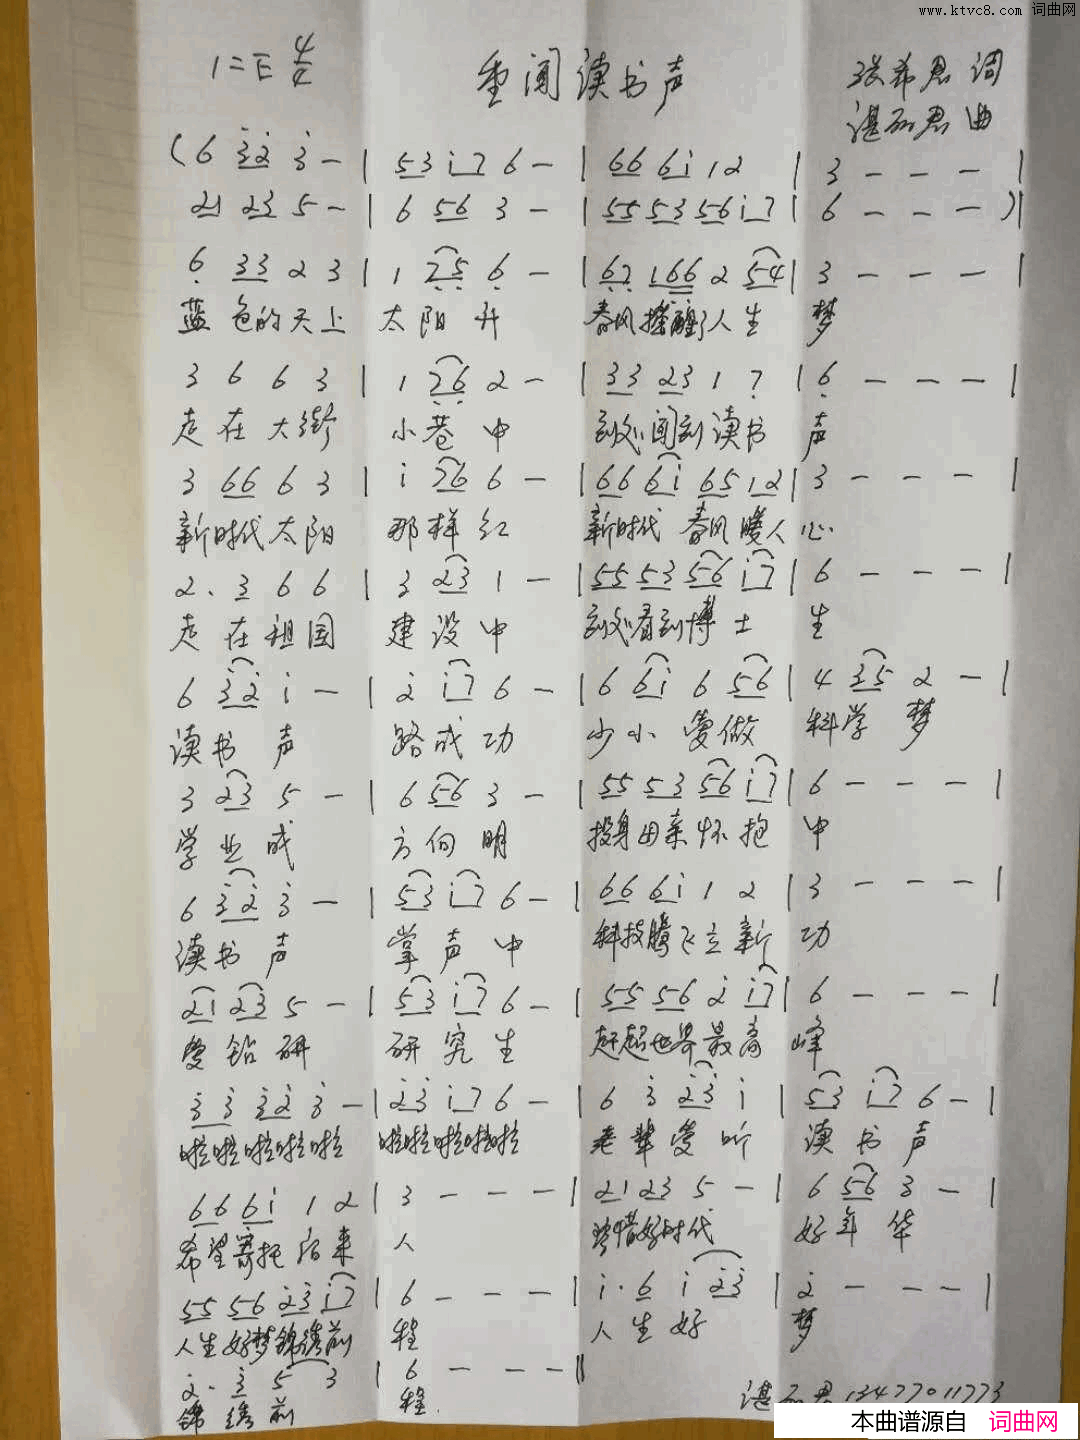 www.ktvc8.com 词曲网
1=E 4/4 重闻读书声 张希君 词
湛丽君 曲
(6 3̇2̇ 3̇ - | 53 i7 6 - | 66 6i 12 | 3 - - - |
21 23 5 - | 6 56 3 - | 55 53 56 i7 | 6 - - - )|
6 33 2 3 | 1 25 6 - | 67 166 2 54 | 3 - - - |
蓝 色的天上 太阳升 春风摧醒了人生 梦
3 6 6 3 | 1 26 2 - | 33 23 1 7 | 6 - - - |
走在大街 小巷中 到处闻到读书 声
3 66 6 3 | i 76 6 - | 66 6i 65 12 | 3 - - - |
新时代太阳 那样红 新时代 春风暖人 心
2. 3 6 6 | 3 23 1 - | 55 53 56 i7 | 6 - - - |
走在祖国 建设中 到处看到博士 生
6 3̇2̇ i - | 2̇ i7 6 - | 6 6i 6 56 | 4 35 2 - |
读书 声 路成功 少小爱做 科学 梦
3 23 5 - | 6 56 3 - | 55 53 56 i7 | 6 - - - |
学业成 方向明 投身母亲怀抱 中
6 3̇2̇ 3̇ - | 53 i7 6 - | 66 6i 1 2 | 3 - - - |
读书 声 掌声中 科技腾飞立新 功
21 23 5 - | 53 i7 6 - | 55 56 2̇ i7 | 6 - - - |
爱钻研 研究生 赶超世界最高 峰
3̇ 3̇ 3̇2̇ 3̇ - | 2̇3̇ i7 6 - | 6 3̇ 2̇3̇ i | 53 i7 6 - |
啦啦啦啦啦 啦啦啦啦啦 老辈爱听 读书声
66 6i 1 2 | 3 - - - | 21 23 5 - | 6 56 3 - |
希望寄托后来 人 珍惜好时代 好年华
55 56 2̇3̇ i7 | 6 - - - | i. 6 i 2̇3̇ | 2̇ - - - |
人生好梦锦绣前 程 人生好 梦
2̇. 3̇ 5 3 | 6 - - - ||
锦绣前 程 湛丽君13477011773
本曲谱源自 词曲网